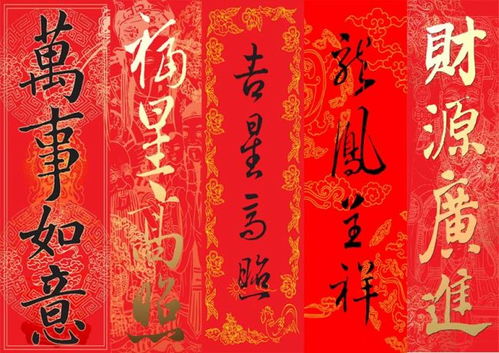 萬事如意
福星高照
吉星高照
龍鳳呈祥
財源廣進